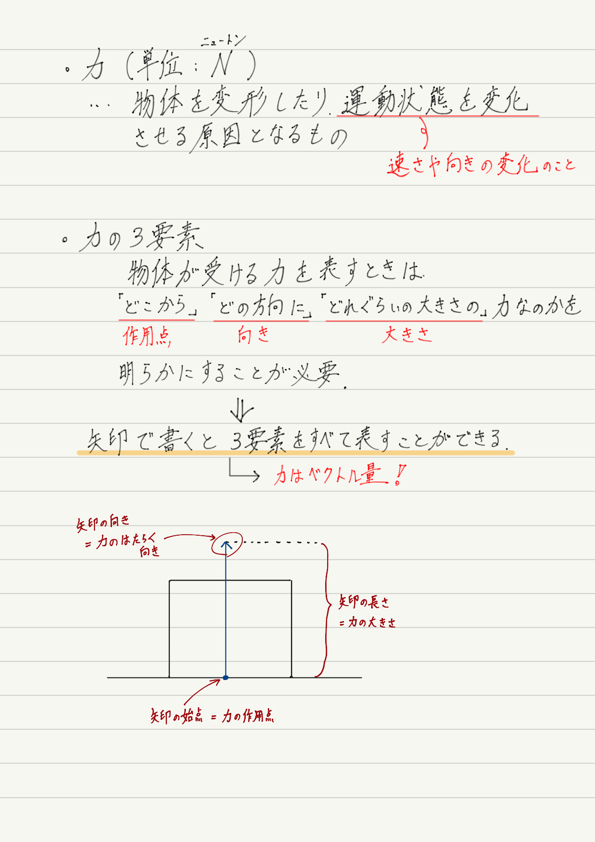 ニュートン
・力（単位：N）
… 物体を変形したり、運動状態を変化
させる原因となるもの
速さや向きの変化のこと
・力の3要素
物体が受ける力を表すときは
「どこから」「どの方向に」「どれぐらいの大きさの」力なのかを
作用点 向き 大きさ
明らかにすることが必要.
⇓
矢印で書くと 3要素をすべて表すことができる.
→ 力はベクトル量!
矢印の向き
=力のはたらく
向き
矢印の長さ
=力の大きさ
矢印の始点=力の作用点